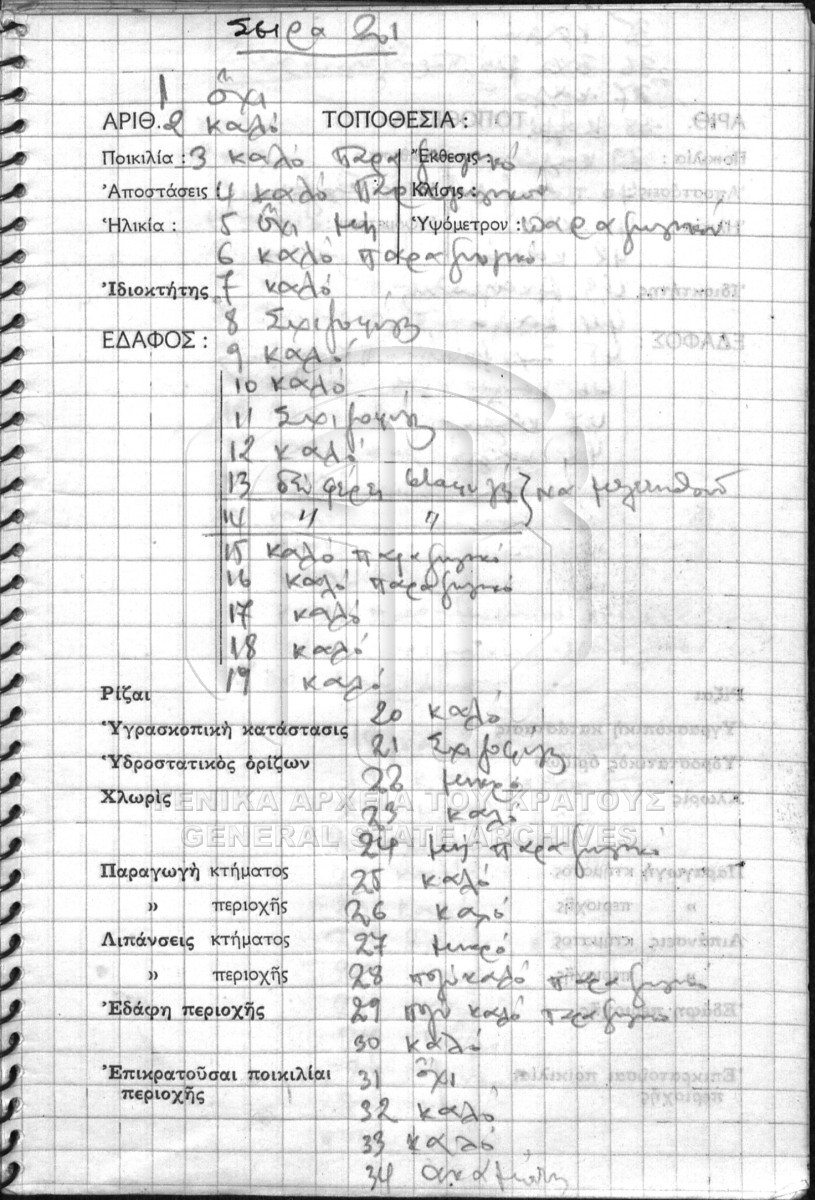 Σειρα 21
1 ὄχι
ΑΡΙΘ. 2 καλό ΤΟΠΟΘΕΣΙΑ :
Ποικιλία : 3 καλό παραγωγικό Ἔκθεσις :
Ἀποστάσεις 4 καλό παραγωγικό Κλίσις :
Ἡλικία : 5 ὄχι μη Ὑψόμετρον : παραγωγικό
6 καλό παραγωγικό
Ἰδιοκτήτης 7 καλό
8 Σχιζοφυλ
ΕΔΑΦΟΣ :
9 καλό
10 καλό
11 Σχιζοφυλ
12 καλό
13 δέν φέρει
14 〃 〃
15 καλό παραγωγικό
16 καλό παραγωγικό
17 καλό
18 καλό
19 καλό
Ρίζαι
20 καλό
Ὑγρασκοπικὴ κατάστασις
21 Σχιζοφυλ
Ὑδροστατικὸς ὁρίζων
22 μικρό
Χλωρὶς
23 καλό
ΓΕΝΙΚΑ ΑΡΧΕΙΑ ΤΟΥ ΚΡΑΤΟΥΣ
GENERAL STATE ARCHIVES
24 μή παραγωγικό
Παραγωγὴ κτήματος 25 καλό
» περιοχῆς 26 καλό
Λιπάνσεις κτήματος 27 μικρό
» περιοχῆς 28 πολύ καλό παραγωγικό
Ἐδάφη περιοχῆς 29 πολύ καλό παραγωγικό
30 καλό
Ἐπικρατοῦσαι ποικιλίαι 31 ὄχι
περιοχῆς
32 καλό
33 καλό
34